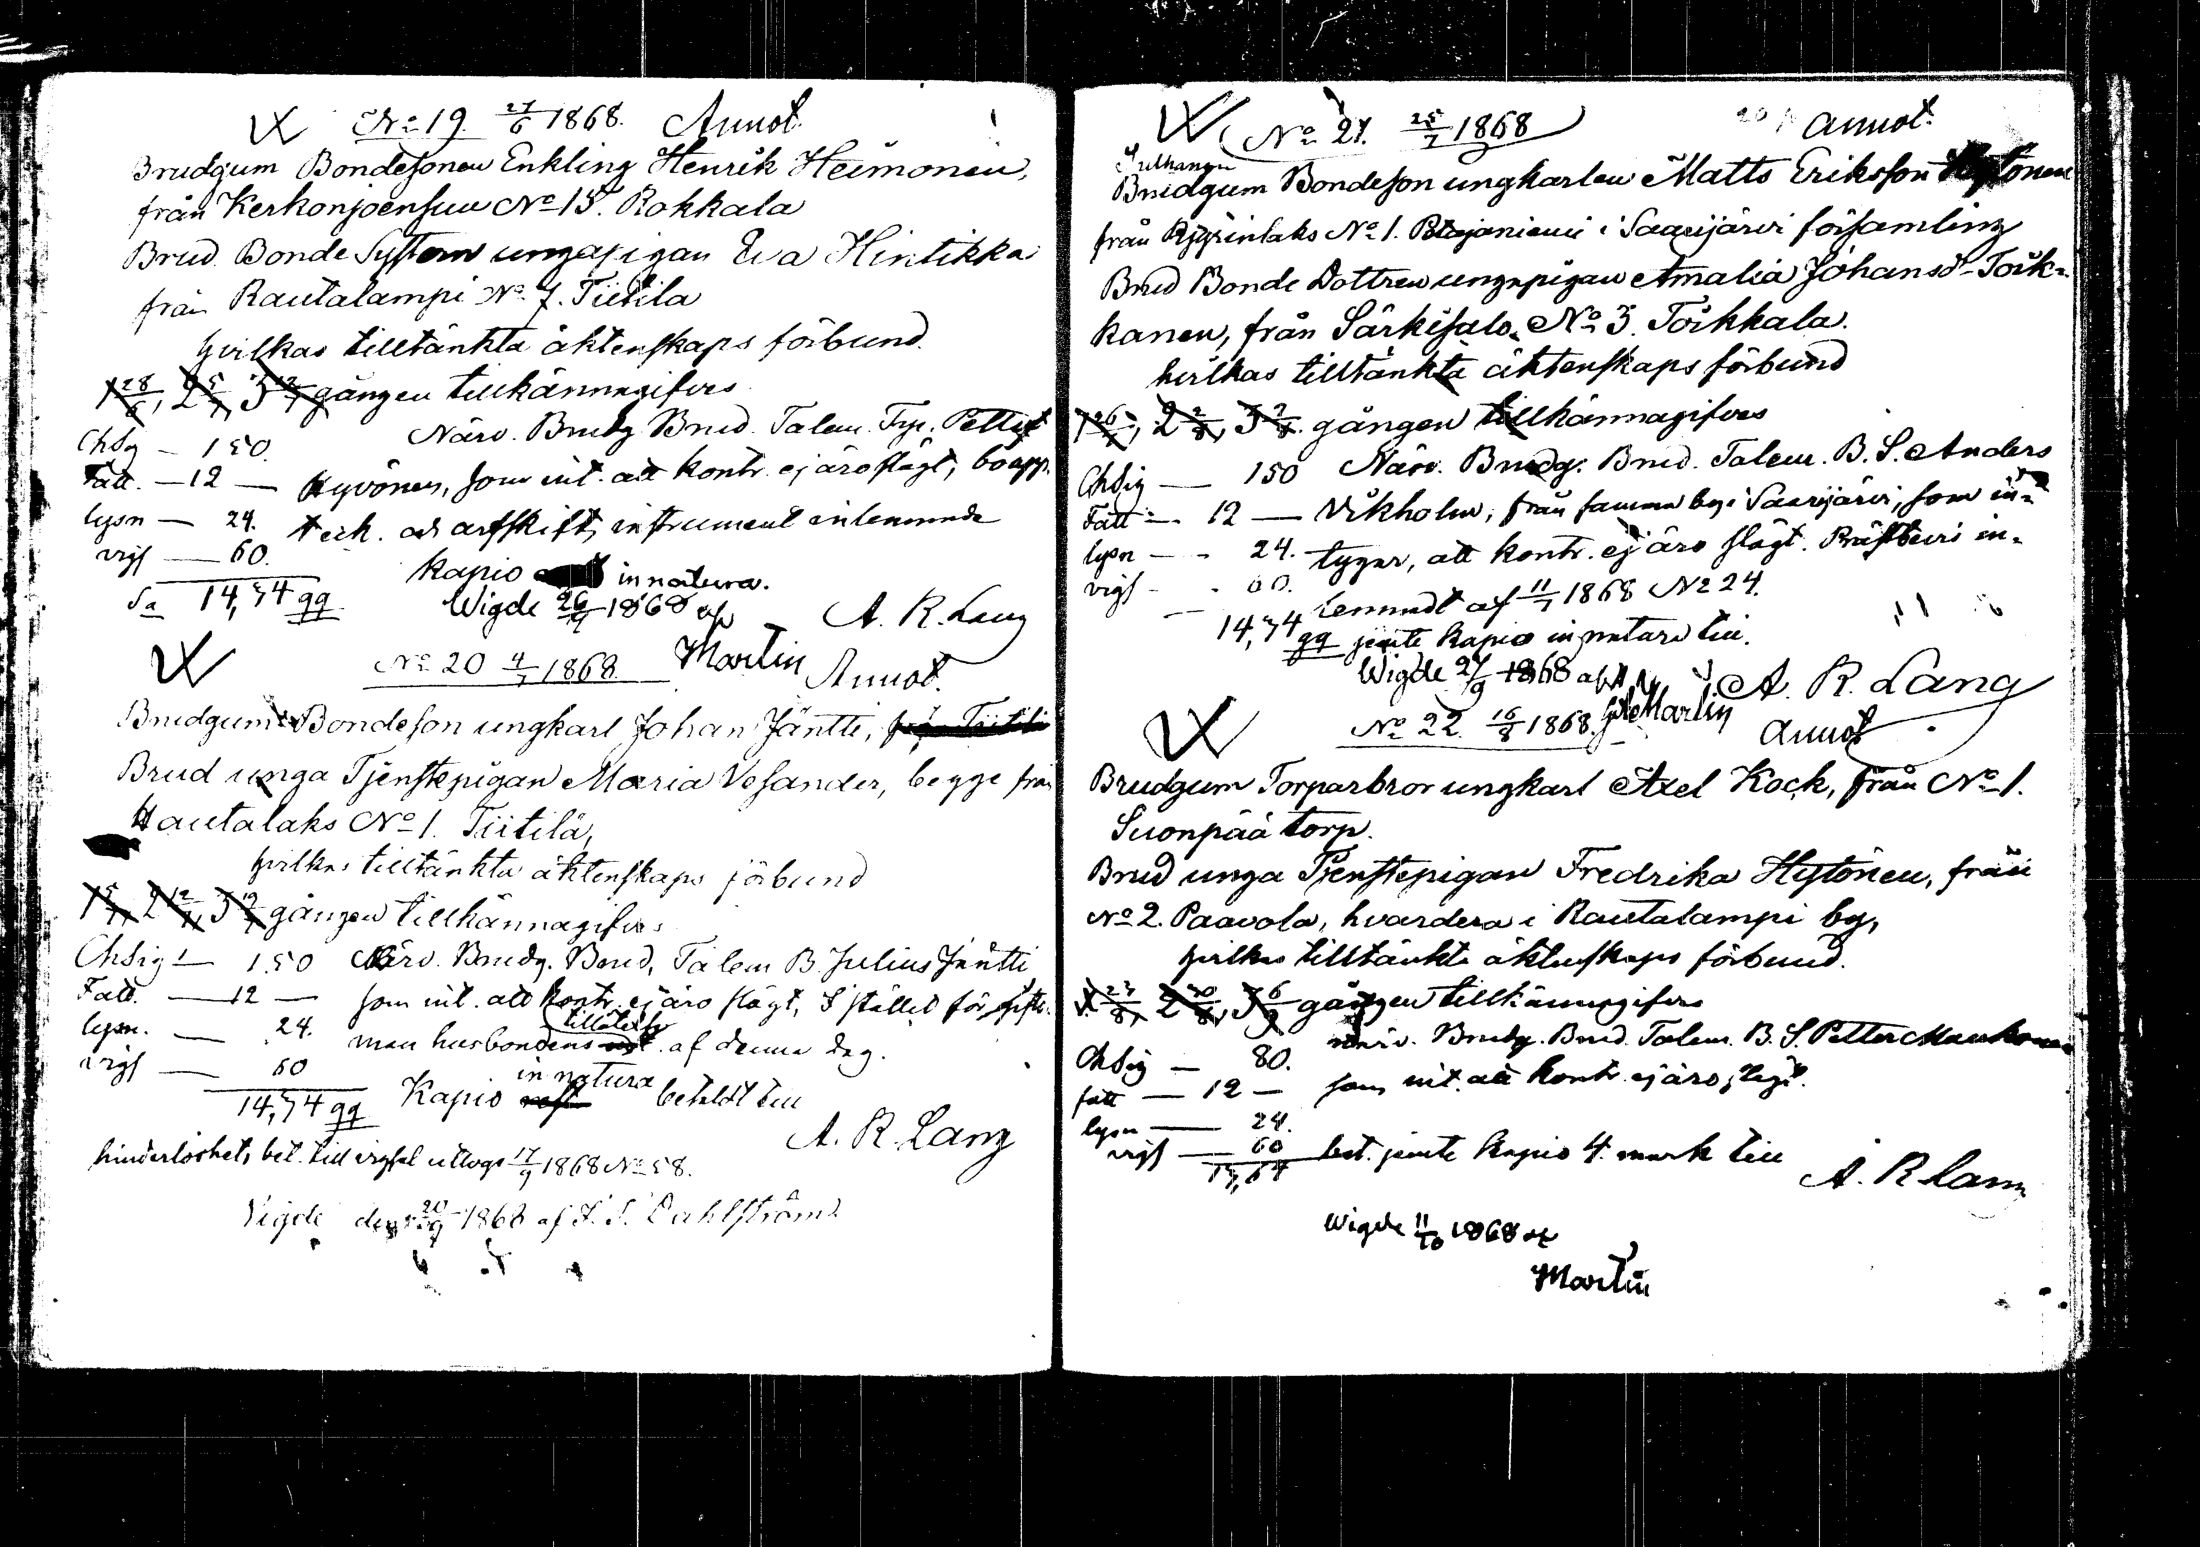 No 19. 27/6 1868. Annot.
Brudgum Bondesonen Enkling Henrik Heimonen,
från Kerkonjoensuu No 15. Rokkala
Brud Bonde Systern unga pigan Eva Hintikka
från Rautalampi No 7. Tiitilä
hvilkas tilltänkta äktenskaps förbund
1 28/6, 2 5/7, 3 12/7 gången tillkännagifves
Närv. Brudg. Brud. Talem. Petter
Chsig — 150.
Fatt. — 12 — Hyvönen, som int. att kontr. ej äro slägt, boupp-
lysn — 24. teck. och arfskift, instrument inlemnade
vigs — 60. Kapio in natura.
Sa 14,74 qq Wigde 26/9 1868 af A. R. Lang
Martin
No 20 4/7 1868. Annot.
Brudgum Bondeson ungkarl Johan Jäntti, från Tiitilä
Brud unga Tjenstepigan Maria Vesander, begge från
Hautalaks No 1. Tiitilä,
hvilkas tilltänkta äktenskaps förbund
1 5/7, 2 12/7, 3 19/7 gången tillkännagifves
Chsig — 1.50 Närv. Brudg. Brud, Talem B. Julius Jäntti
Fatt. — 12 — som int. att kontr. ej äro slägt, I stället för gifto-
lysn. — 24. man husbondens tillåtelse af denna dag.
vigs — 60
14,74 qq Kapio in natura betaldt till
A. R. Lang
hinderlöshets bet. till vigsel uttogs 17/9 1868 No 58.
Vigde den 20/9 1868 af Dahlström
No 21. 25/7 1868 Annot.
Brudgum Bondeson ungkarlen Matts Eriksson Hytönen
från No 1. i Saarijärvi församling
Brud Bonde Dottren unga pigan Amalia Johansd. Törk-
kanen, från Särkisalo No 3. Törkkala.
hvilkas tilltänkta äktenskaps förbund
1 26/7, 2 2/8, 3 9/8 gången tillkännagifves
Chsig — 150 Närv. Brudg. Brud. Talem. B. S. Anders
Fatt — 12 — Vikholm, från samma by i Saarijärvi, som in-
lysn — 24. tygar, att kontr. ej äro slägt. Prästbevis in-
vigs — 60. lemnadt af 11/7 1868 No 24.
14,74 qq jemte Kapio in natura till.
Wigde 27/9 1868 af A. R. Lang
Martin
No 22. 16/8 1868. Annot
Brudgum Torparbror ungkarl Axel Kock, från No 1.
Suonpää torp.
Brud unga Tjenstepigan Fredrika Hytönen, från
No 2. Paavola, hvardera i Rautalampi by,
hvilkas tilltänkta äktenskaps förbund.
1 23/8, 2 30/8, 3 6/9 gången tillkännagifves
Närv. Brudg. Brud. Talem. B. S. Petter
Chsig — 80.
fatt — 12 — som int. att kontr. ej äro slägt.
lysn — 24.
vigs — 60 bet. jemte Kapio 4 mark till
A. R. Lang
Wigde 11/10 1868 af
Martin